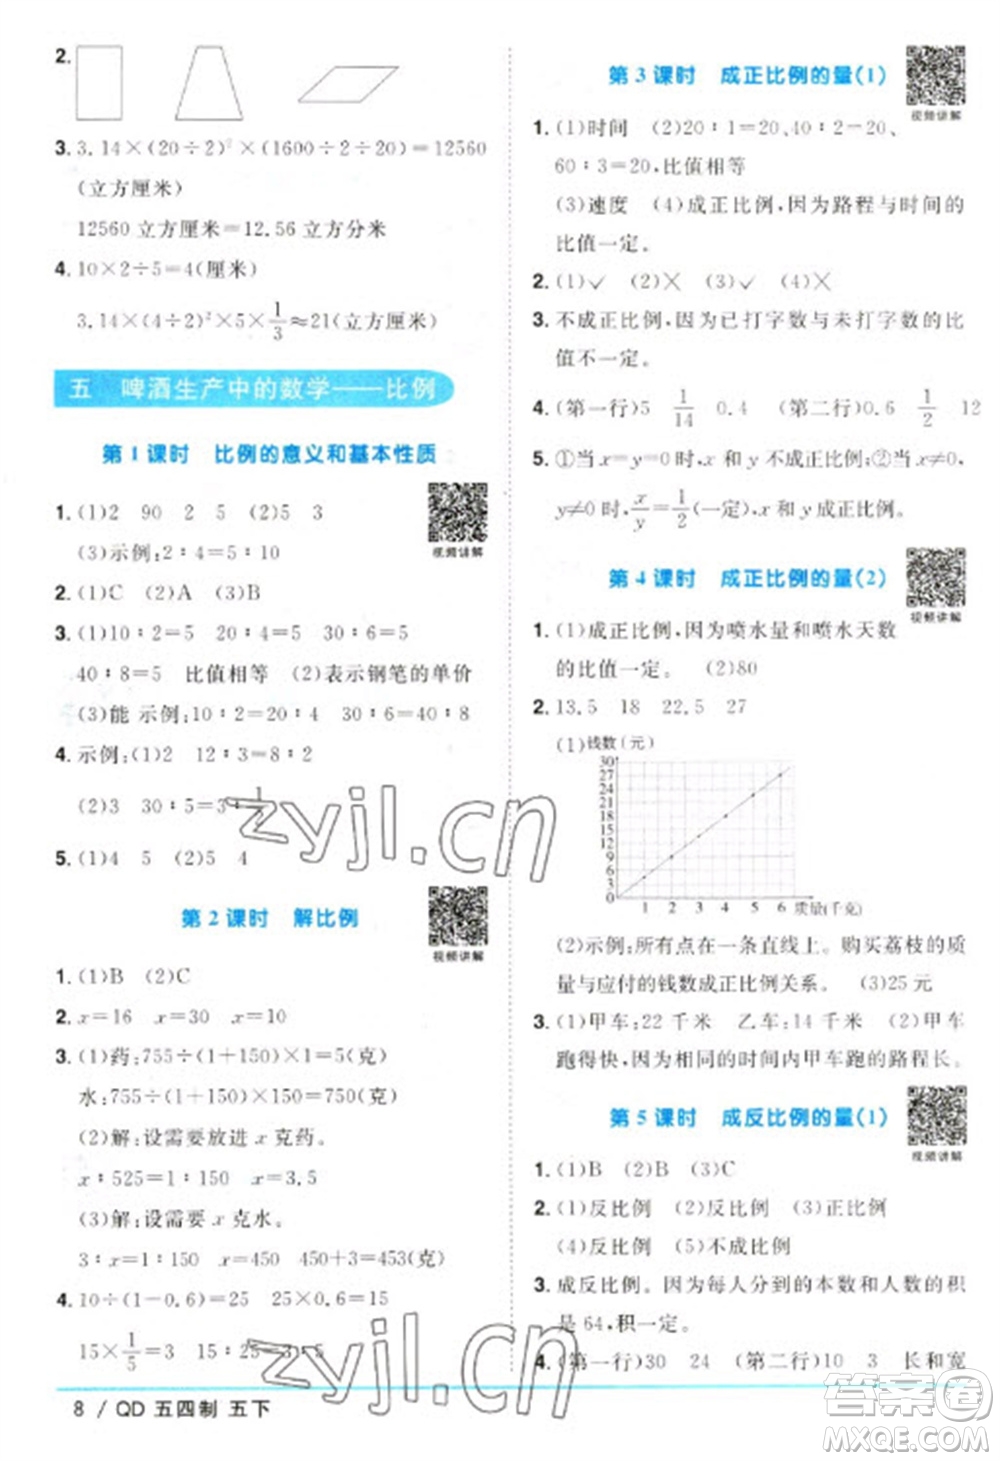 2.
3. 3.14×(20÷2)²×(1600÷2÷20)=12560
(立方厘米)
12560立方厘米=12.56立方分米
4. 10×2÷5=4(厘米)
3.14×(4÷2)²×5×1/3≈21(立方厘米)
五 啤酒生产中的数学——比例
第1课时 比例的意义和基本性质
1. (1)2 90 2 5 (2)5 3
(3)示例:2∶4=5∶10
视频讲解
2. (1)C (2)A (3)B
3. (1)10∶2=5 20∶4=5 30∶6=5
40∶8=5 比值相等 (2)表示钢笔的单价
(3)能 示例:10∶2=20∶4 30∶6=40∶8
4. 示例:(1)2 12∶3=8∶2
(2)3 30∶5=3∶
5. (1)4 5 (2)5 4
第2课时 解比例
视频讲解
1. (1)B (2)C
2. x=16 x=30 x=10
3. (1)药:755÷(1+150)×1=5(克)
水:755÷(1+150)×150=750(克)
(2)解:设需要放进x克药。
x∶525=1∶150 x=3.5
(3)解:设需要x克水。
3∶x=1∶150 x=450 450+3=453(克)
4. 10÷(1-0.6)=25 25×0.6=15
15×1/5=3 15∶25=3∶
8 / QD 五四制 五下
第3课时 成正比例的量(1)
视频讲解
1. (1)时间 (2)20∶1=20,40∶2=20,
60∶3=20,比值相等
(3)速度 (4)成正比例,因为路程与时间的
比值一定。
2. (1)✓ (2)✕ (3)✓ (4)✕
3. 不成正比例,因为已打字数与未打字数的比
值不一定。
4. (第一行)5 1/14 0.4 (第二行)0.6 1/2 12
5. ①当x=y=0时,x和y不成正比例;②当x≠0,
y≠0时,x/y=1/2(一定),x和y成正比例。
第4课时 成正比例的量(2)
视频讲解
1. (1)成正比例,因为喷水量和喷水天数
的比值一定。 (2)80
2. 13.5 18 22.5 27
(1)钱数(元)
30
27
24
21
18
15
12
9
6
3
0
1 2 3 4 5 6 质量(千克)
(2)示例:所有点在一条直线上。购买荔枝的质
量与应付的钱数成正比例关系。 (3)25元
3. (1)甲车:22千米 乙车:14千米 (2)甲车
跑得快。因为相同的时间内甲车跑的路程长。
第5课时 成反比例的量(1)
视频讲解
1. (1)B (2)B (3)C
2. (1)反比例 (2)反比例 (3)正比例
(4)反比例 (5)不成比例
3. 成反比例。因为每人分到的本数和人数的积
是64,积一定。
4. (第一行)30 24 (第二行)10 3 长和宽
zyjl.cn
zyjl.cn
答案圈
MXQE.COM